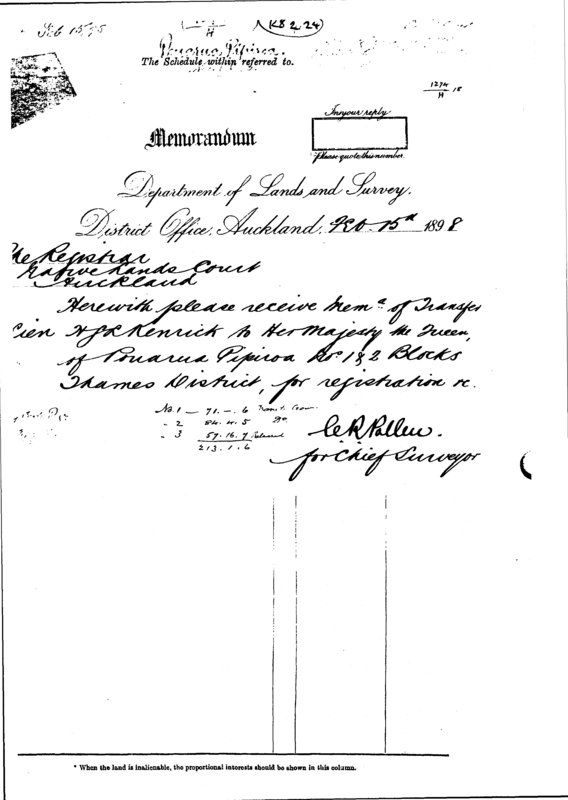 Feb 15 95
H
K8 2 24
Pouarua Pipiroa.
The Schedule within referred to.
1274
H 18
In your reply
Memorandum
Please quote this number.
Department of Lands and Survey,
District Office, Auckland, Feb. 15th 1898
The Registrar
Native Lands Court
Auckland
Herewith please receive Memo of Transfer
Lien H. Kenrick to Her Majesty the Queen,
of Pouarua Pipiroa No 1 & 2 Blocks
Thames District, for registration &c.
No. 1 — 71. -. 6 Crown
" 2 84. 4. 5 do
" 3 57. 16. 7
213. 1. 6
C R Pollen.
for Chief Surveyor
* When the land is inalienable, the proportional interests should be shown in this column.